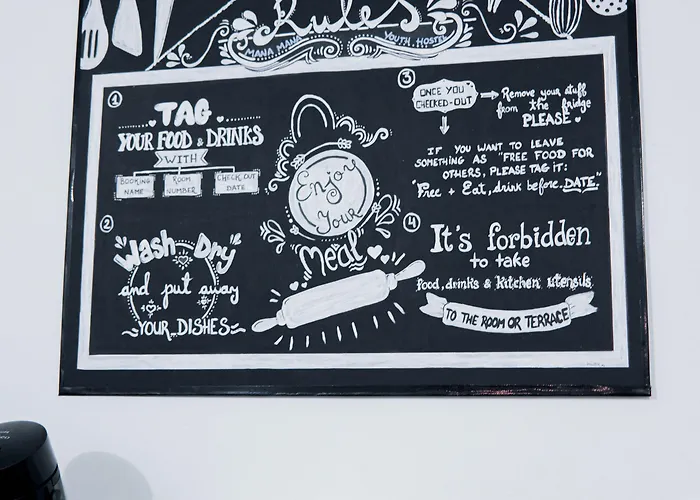 Rules
MANA MANA YOUTH HOSTEL
1
TAG
YOUR FOOD & DRINKS
WITH
BOOKING NAME
ROOM NUMBER
CHECK OUT DATE
2
Wash Dry
and put away
YOUR DISHES
Enjoy
Your
Meal
3
ONCE YOU
CHECKED-OUT
Remove your stuff
from the fridge
PLEASE
IF YOU WANT TO LEAVE
SOMETHING AS "FREE FOOD FOR
OTHERS, PLEASE TAG IT:
"Free + Eat, drink before DATE"
4
It's forbidden
to take
food, drinks & kitchen utensils
TO THE ROOM OR TERRACE